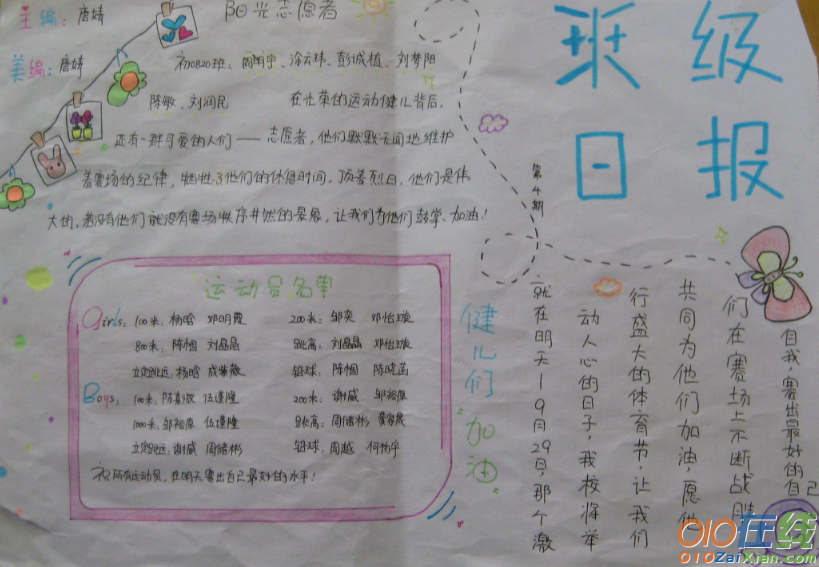 班级
日报
第4期
主编：唐婧
美编：唐婧
阳光志愿者
初0820班：涂云玮、彭诚植、刘梦阳
陈敏、刘润民 在光荣的运动健儿背后，
还有一群可爱的人们——志愿者，他们默默无闻地维护
着赛场的纪律，牺牲了他们的休息时间，顶着烈日，他们是伟
大的，若没有他们就没有赛场秩序井然的景象，让我们为他们鼓掌、加油！
运动员名单
Girls：100米：杨晗 邓明霞 200米：邹奕 邓怡璇
800米：陈帼 刘晶晶 跳高：刘晶晶 邓怡璇
立定跳远：杨晗 成紫薇 铅球：陈帼 陈晓菡
Boys：100米：陈嘉淑 伍运隆 200米：谢威 邹裕原
1000米：邹裕原 伍运隆 跳高：周绪彬
立定跳远：谢威 周绪彬 铅球：周越 何杨宇
祝所有运动员，在明天赛出自己最好的水平！
健儿们加油
就在明天——9月29日，那个激
动人心的日子，我校将举
行盛大的体育节，让我们
共同为他们加油，愿他
们在赛场上不断战胜
自我，赛出最好的自己
010在线
010ZaiXian.com